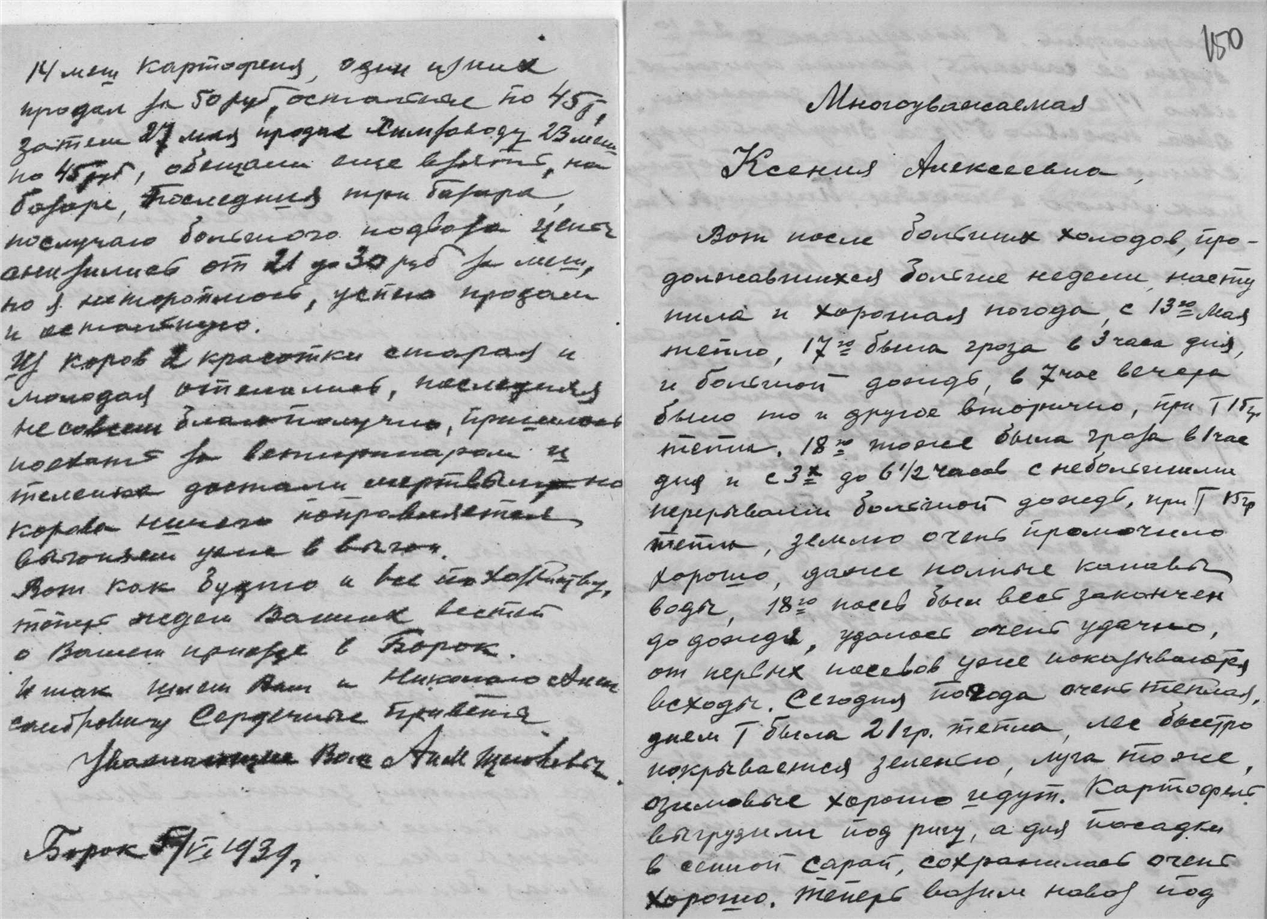 14 меш картофеля, один из них
продал за 50 руб, остальные по 45 р,
затем 27 мая продал Химзаводу 23 меш
по 45 руб, обещали еще взять, на
базаре, последния три базара,
послучаю большого подвоза цены
снизились от 21 до 30 руб за меш,
но я неторотлюсь, успею продам
и остальную.
Из коров 2 красотки старая и
молодая отелались, последняя
не совсем благополучно, пришлось
поехать за ветинаром и
теленка достали мертвым но
корова ничего поправляется
выгоняем уже в выгон.
Вот как будто и все по хозяйству,
теперь ждем Ваших вестей
о Вашем приезде в Борок.
Итак шлем Вам и Николаю Алек
сандровичу Сердечные Приветы
Уважающие Вас
Борок 5/VI 1939 г,
150
Многоуважаемая
Ксения Алексеевна,
Вот после больших холодов, про-
должавшихся более недели, насту
пила и хорошая погода, с 13го Мая
тепло, 17го была гроза в 3 часа дня,
и большой дождь, в 7 час вечера
было то и другое вторично, при Т 15 гр
тепла. 18го тоже была гроза в 1 час
дня и с 3х до 6 1/2 часов с небольшими
перерывами большой дождь, при Т 15 гр
тепла, землю очень промочило
хорошо, даже полные канавы
воды, 18го посев был весь закончен
до дождя, удалось очень удачно,
от первых посевов уже показываются
всходы. Сегодня погода очень теплая,
днем Т была 21 гр. тепла, лес быстро
покрывается зеленью, луга тоже,
озимовые хорошо идут. Картофель
выгрузили под ригу, а для посадки
в сенной сарай, сохранилась очень
хорошо. Теперь возим навоз под